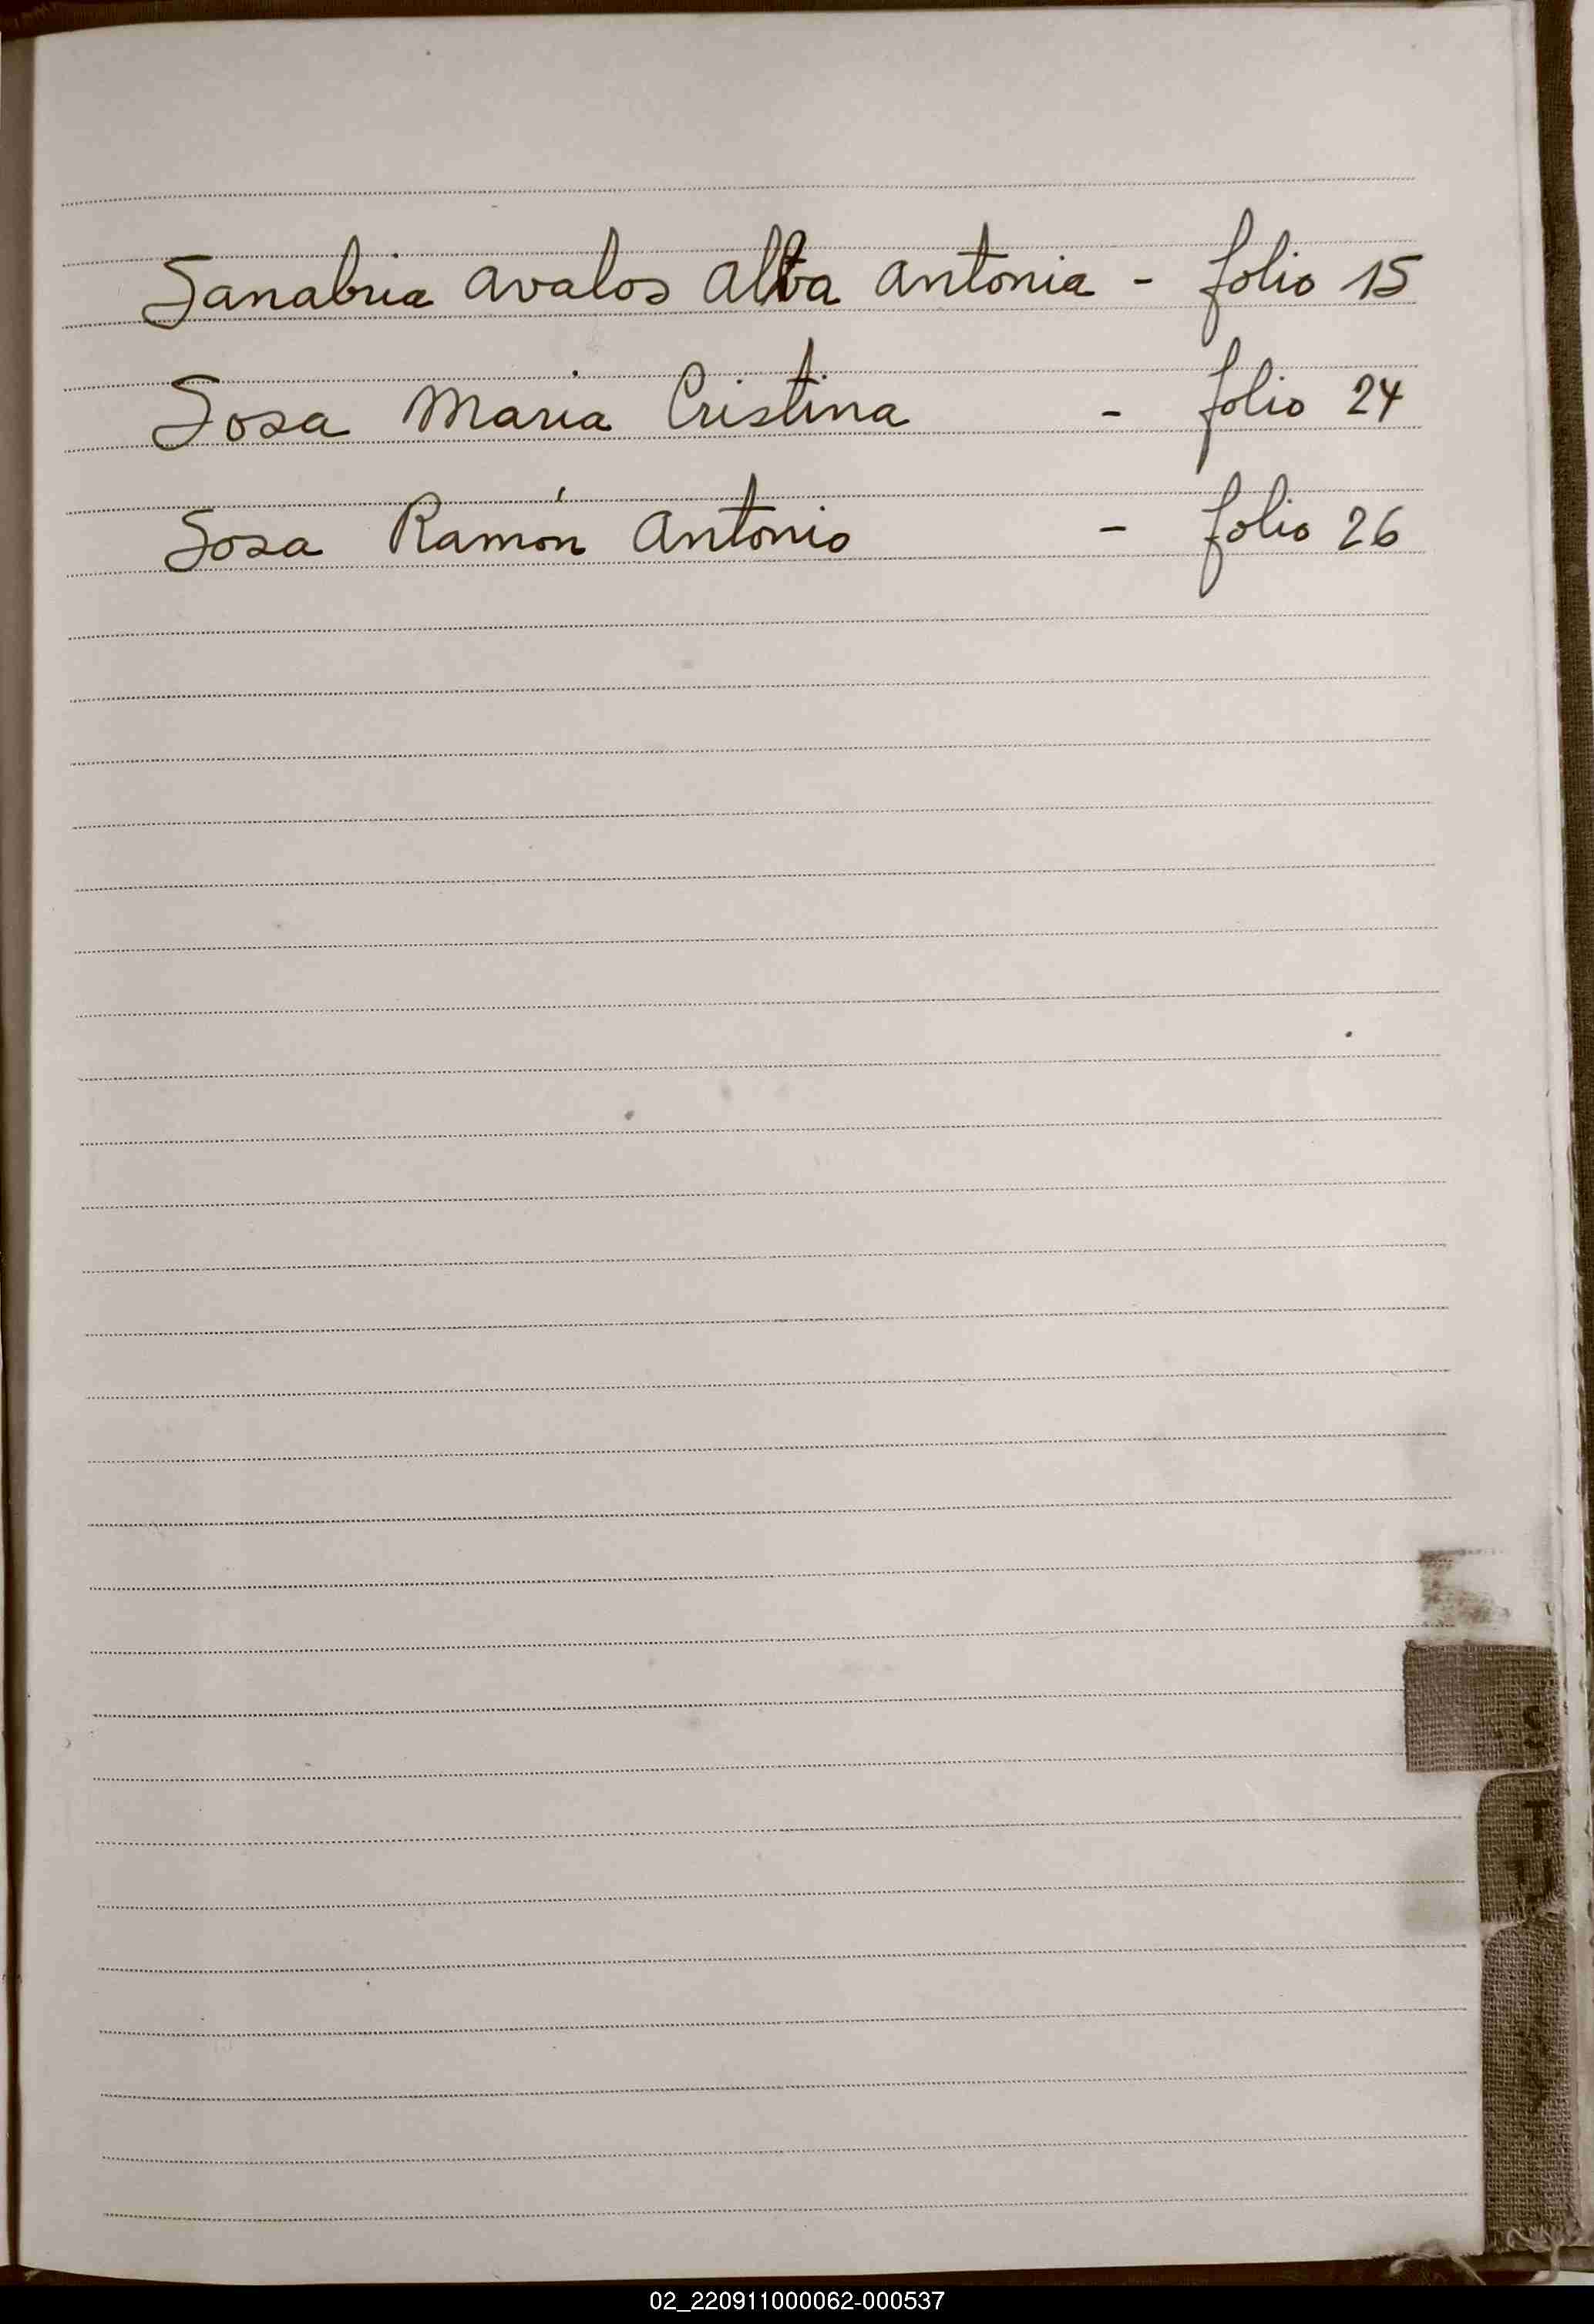 Sanabria Avalos Alba Antonia - folio 15
Sosa Maria Cristina - folio 24
Sosa Ramón Antonio - folio 26
S
T
02_220911000062-000537